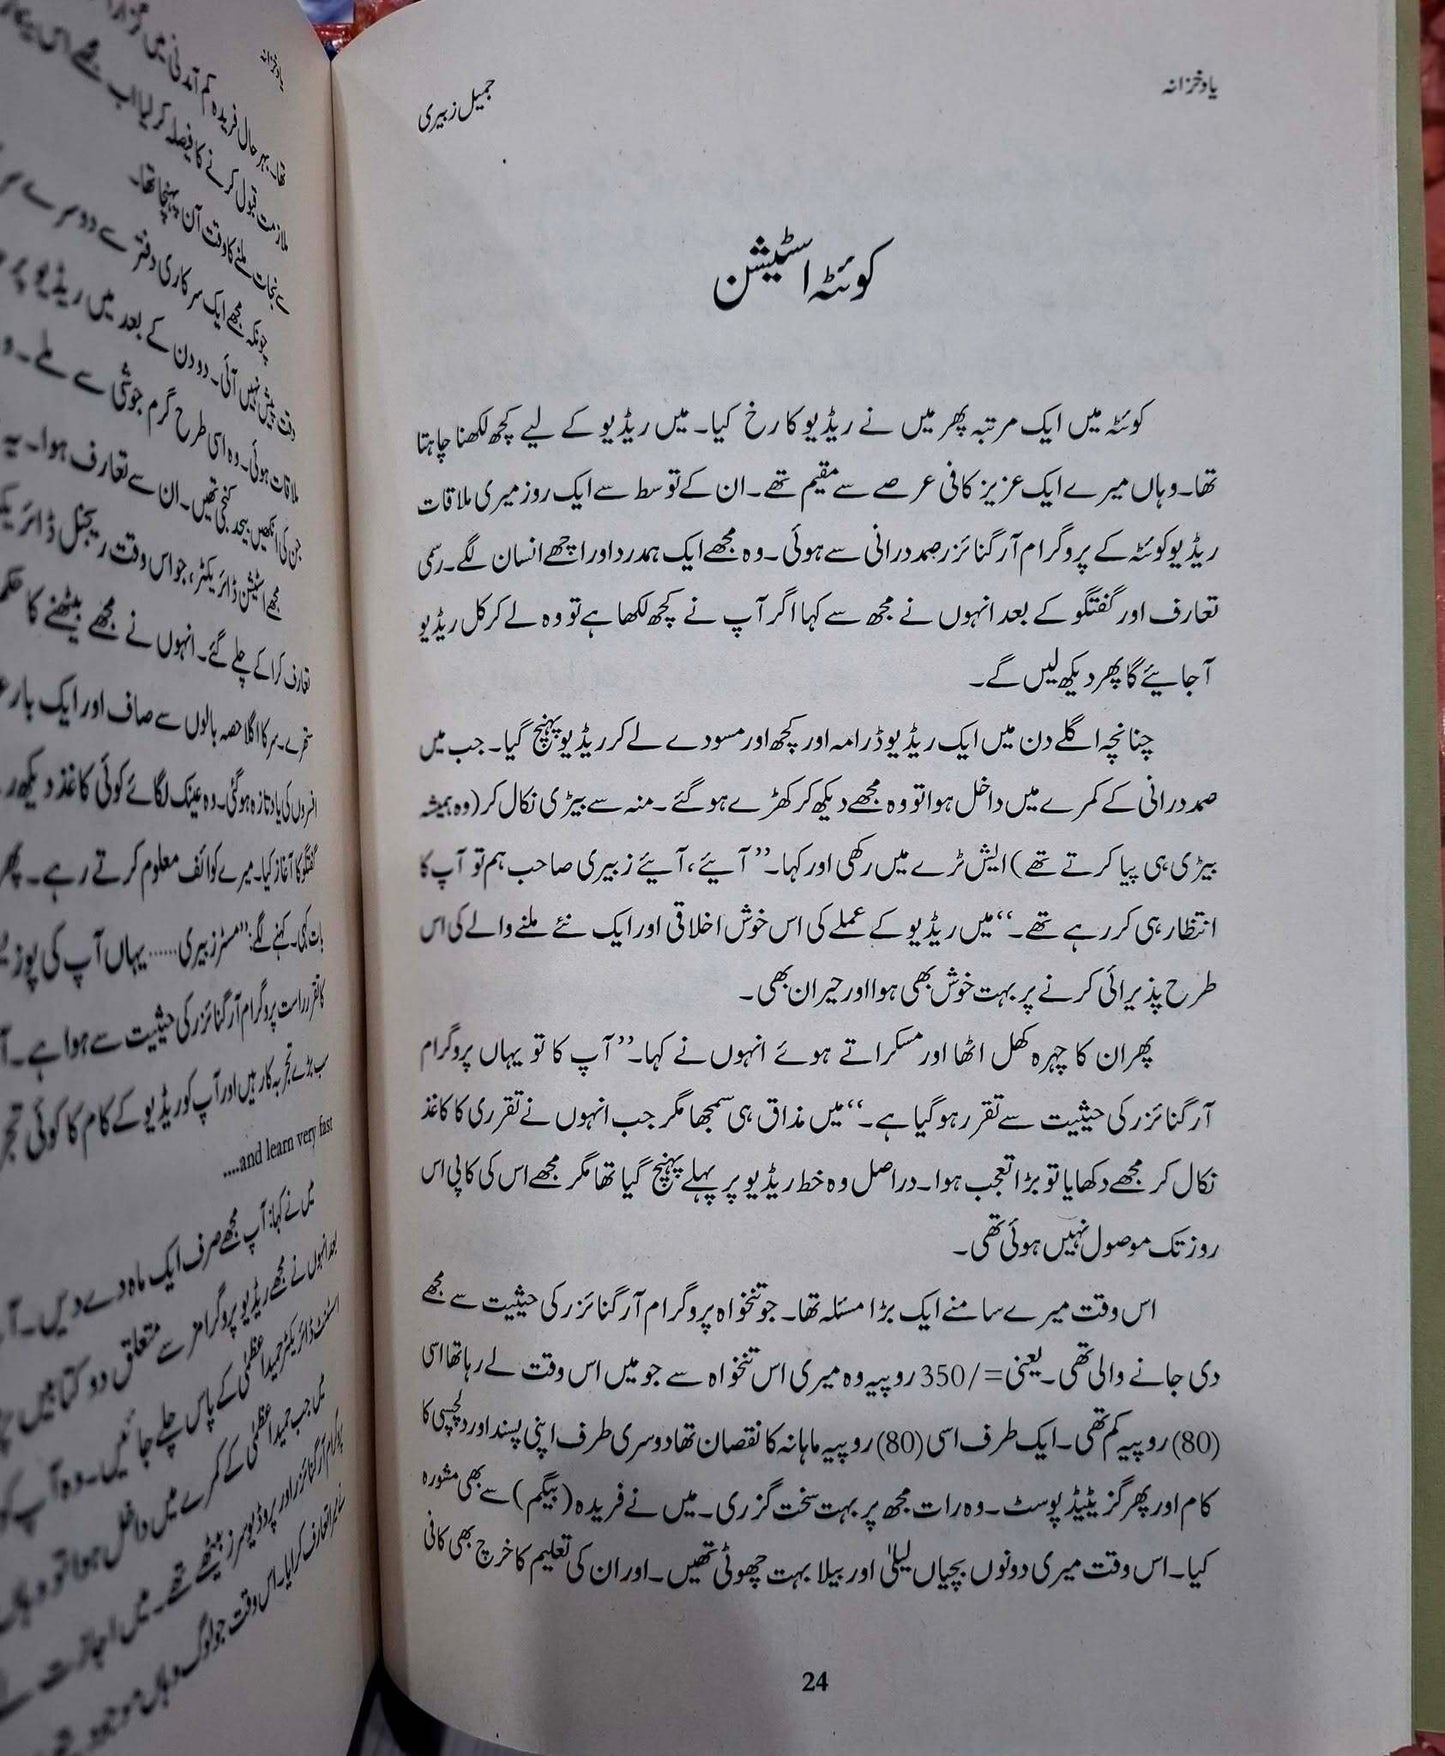 یادِ خزانہ
جمیل زبیری
کوئٹہ اسٹیشن
کوئٹہ میں ایک مرتبہ پھر میں نے ریڈیو کا رخ کیا۔ میں ریڈیو کے لیے کچھ لکھنا چاہتا
تھا۔ وہاں میرے ایک عزیز کافی عرصے سے مقیم تھے۔ ان کے توسط سے ایک روز میری ملاقات
ریڈیو کوئٹہ کے پروگرام آرگنائزر صمد درانی سے ہوئی۔ وہ مجھے ایک ہمدرد اور اچھے انسان لگے۔ رسمی
تعارف اور گفتگو کے بعد انہوں نے مجھ سے کہا اگر آپ نے کچھ لکھا ہے تو وہ لے کر کل ریڈیو
آ جایئے گا پھر دیکھ لیں گے۔
چنانچہ اگلے دن میں ایک ریڈیو ڈرامہ اور کچھ اور مسودے لے کر ریڈیو پہنچ گیا۔ جب میں
صمد درانی کے کمرے میں داخل ہوا تو وہ مجھے دیکھ کر کھڑے ہو گئے۔ منہ سے بیڑی نکال کر (وہ ہمیشہ
بیڑی ہی پیا کرتے تھے) ایش ٹرے میں رکھی اور کہا۔ ”آیئے، آیئے زبیری صاحب ہم تو آپ کا
انتظار ہی کر رہے تھے۔“ میں ریڈیو کے عملے کی اس خوش اخلاقی اور ایک نئے ملنے والے کی اس
طرح پذیرائی کرنے پر بہت خوش بھی ہوا اور حیران بھی۔
پھر ان کا چہرہ کھل اٹھا اور مسکراتے ہوئے انہوں نے کہا۔ ”آپ کا تو یہاں پروگرام
آرگنائزر کی حیثیت سے تقرر ہو گیا ہے۔“ میں مذاق ہی سمجھا مگر جب انہوں نے تقرری کا کاغذ
نکال کر مجھے دکھایا تو بڑا تعجب ہوا۔ دراصل وہ خط ریڈیو پر پہلے پہنچ گیا تھا مگر مجھے اس کی کاپی اس
روز تک موصول نہیں ہوئی تھی۔
اس وقت میرے سامنے ایک بڑا مسئلہ تھا۔ جو تنخواہ پروگرام آرگنائزر کی حیثیت سے مجھے
دی جانے والی تھی۔ یعنی =/350 روپیہ وہ میری اس تنخواہ سے جو میں اس وقت لے رہا تھا اسی
(80) روپیہ کم تھی۔ ایک طرف اسی (80) روپیہ ماہانہ کا نقصان تھا دوسری طرف اپنی پسند اور دلچسپی کا
کام اور پھر گزیٹیڈ پوسٹ۔ وہ رات مجھ پر بہت سخت گزری۔ میں نے فریدہ (بیگم) سے بھی مشورہ
کیا۔ اس وقت میری دونوں بچیاں لیلیٰ اور بیلا بہت چھوٹی تھیں۔ اور ان کی تعلیم کا خرچ بھی کافی
24
تھا۔ بہرحال فریدہ کم آمدنی میں
ملازمت قبول کرنے کا فیصلہ کر لیا اب مجھے اس
سے نجات ملنے کا وقت آن پہنچا تھا۔
چونکہ مجھے ایک سرکاری دفتر سے دوسرے
وقت پیش نہیں آئی۔ دو دن کے بعد میں ریڈیو پر
ملاقات ہوئی۔ وہ اسی طرح گرم جوشی سے ملے۔
جن کی آنکھیں بیحد کنجی تھیں۔ ان سے تعارف ہوا۔ یہ
مجھے اسٹیشن ڈائریکٹر، جو اس وقت ریجنل
تعارف کرا کے چلے گئے۔ انہوں نے مجھے بیٹھنے کا
ستھرے۔ سر کا اگلا حصہ بالوں سے صاف اور ایک بار
افسروں کی یاد تازہ ہو گئی۔ وہ عینک لگائے کوئی کاغذ دیکھ
گفتگو کا آغاز کیا۔ میرے کوائف معلوم کرتے رہے۔ پھر
بات کی۔ کہنے لگے: ”مسٹر زبیری...... یہاں آپ کی
کا تقرر راست پروگرام آرگنائزر کی حیثیت سے ہوا ہے۔
سب بڑے تجربہ کار ہیں اور آپ کو ریڈیو کے کام کا کوئی
and learn very fast....
میں نے کہا: آپ مجھے صرف ایک ماہ دے دیں۔
بعد انہوں نے مجھے ریڈیو پروگرامز سے متعلق دو کتابیں
اسسٹنٹ ڈائریکٹر حمید اعظمی کے پاس چلے جائیں۔ وہ آپ کو
میں جب حمید اعظمی کے کمرے میں داخل ہوا تو وہاں
پروگرام آرگنائزر اور پروڈیوسرز بیٹھے تھے۔ میں اجازت
تعارف کرایا۔ اس وقت جو لوگ وہاں موجود